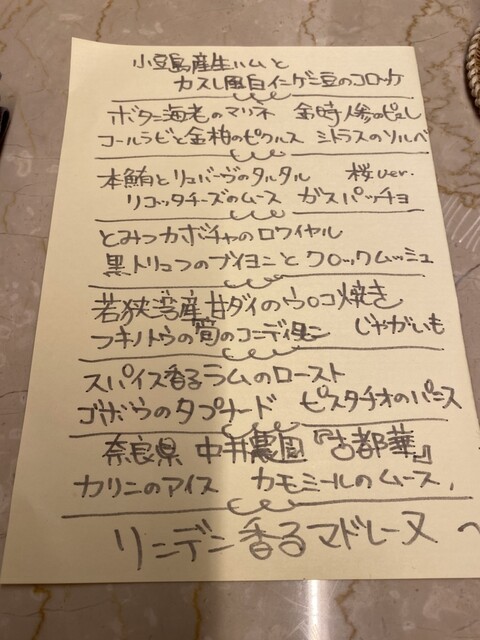 小豆島産生ハムと
カスレ風白インゲン豆のコロッケ
ボタン海老のマリネ 金時人参のピュレ
コールラビと金柑のピクルス シトラスのソルベ
本鮪とリュバーヴのタルタル 桜ver.
リコッタチーズのムース ガスパッチョ
とみつカボチャのロワイヤル
黒トリュフのブイヨンとクロックムッシュ
若狭湾産甘ダイのウロコ焼き
フキノトウの筍のコンディマン じゃがいも
スパイス香るラムのロースト
ゴボウのタプナード ピスタチオのパニス
奈良県 中井農園『古都華』
カリンのアイス カモミールのムース,
リンデン香るマドレーヌ